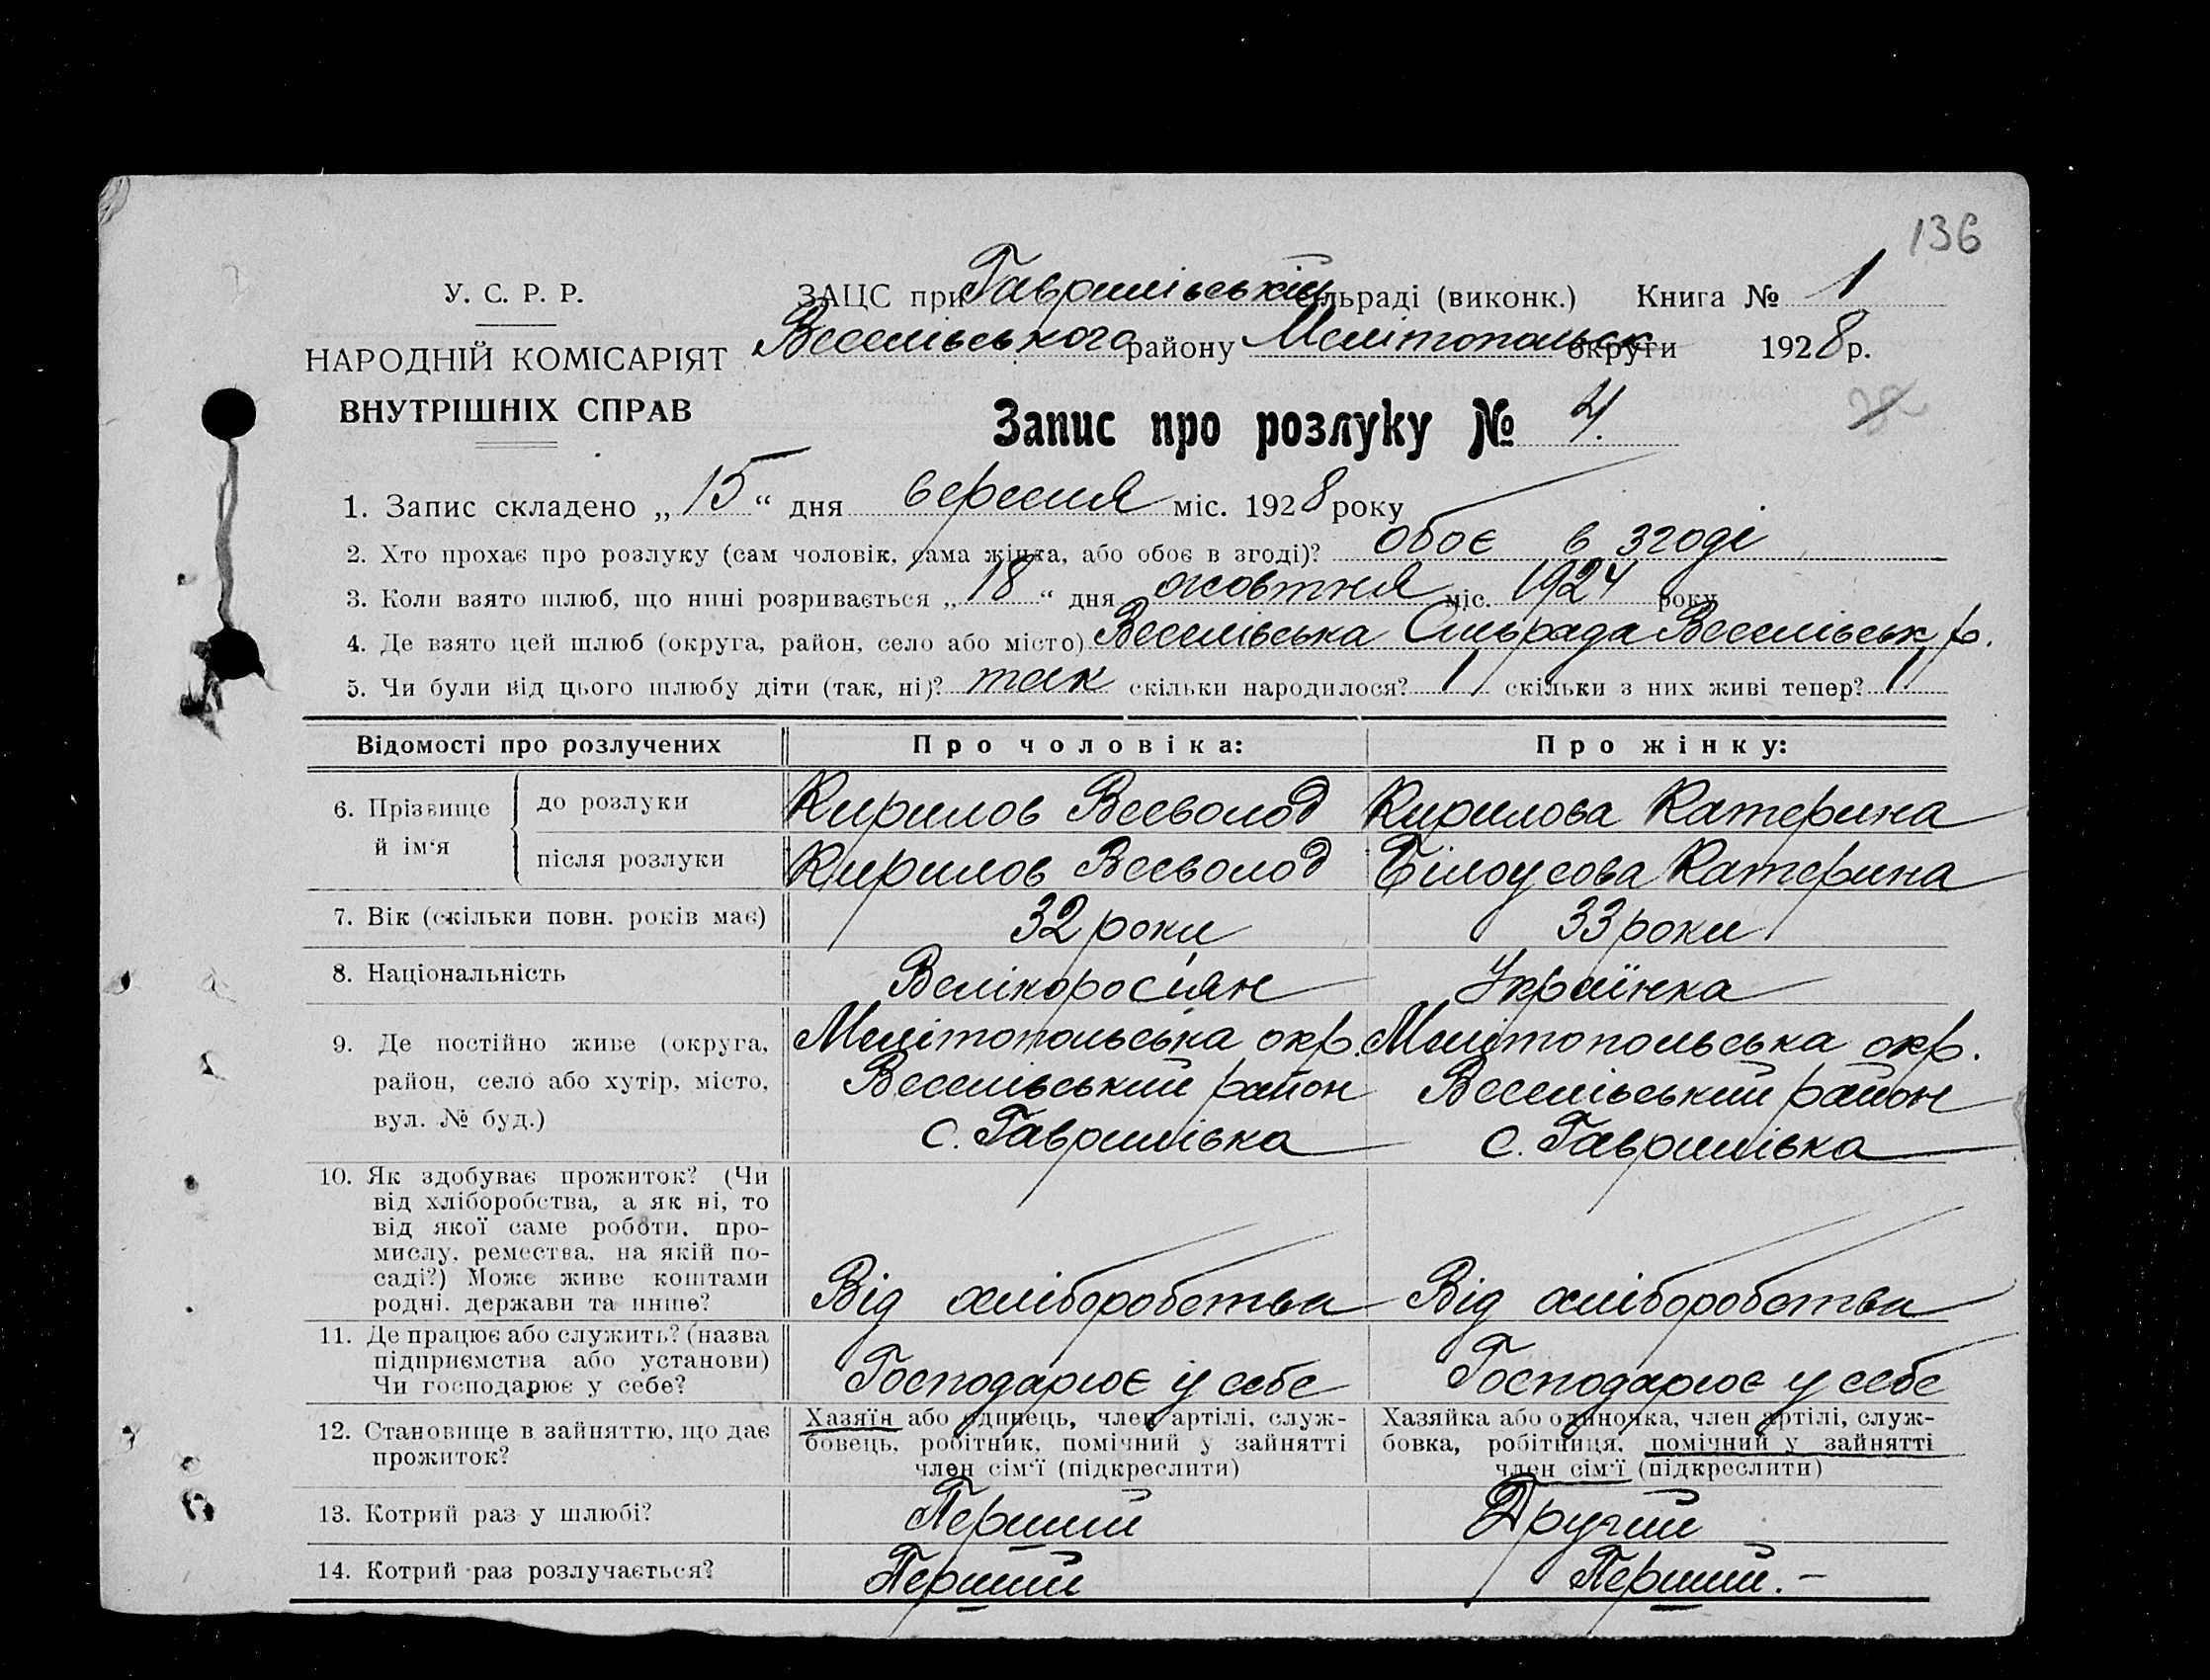 136
У. С. Р. Р.
НАРОДНІЙ КОМІСАРІЯТ
ВНУТРІШНІХ СПРАВ
ЗАЦС при Гаврилівській сільраді (виконк.) Книга № 1
Веселівського району Мелітопольск округи 1928 р.
Запис про розлуку № 4.
1. Запис складено „ 15 “ дня вересня міс. 1928 року
2. Хто прохає про розлуку (сам чоловік, сама жінка, або обоє в згоді)? обоє в згоді
3. Коли взято шлюб, що нині розривається „ 18 “ дня жовтня міс. 1924 року
4. Де взято цей шлюб (округа, район, село або місто) Веселівська Сільрада Веселівськ р.
5. Чи були від цього шлюбу діти (так, ні)? так скільки народилося? 1 скільки з них живі тепер? 1
Відомості про розлучених Про чоловіка: Про жінку:
6. Прізвище й ім‘я
до розлуки Кирилов Всеволод Кирилова Катерина
після розлуки Кирилов Всеволод Білоусова Катерина
7. Вік (скільки повн. років має) 32 роки 33 роки
8. Національність Велікоросіян Українка
9. Де постійно живе (округа, Мелітопольська окр. Мелітопольська окр.
район, село або хутір, місто, Веселівський район Веселівський район
вул. № буд.) с. Гаврилівка с. Гаврилівка
10. Як здобуває прожиток? (Чи
від хліборобства, а як ні, то
від якої саме роботи, про-
мислу, ремества, на якій по-
саді?) Може живе коштами
родні, держави та инше? Від хліборобства Від хліборобства
11. Де працює або служить? (назва
підприємства або установи)
Чи господарює у себе? Господарює у себе Господарює у себе
12. Становище в зайняттю, що дає
прожиток?
Хазяїн або одинець, член артілі, служ-
бовець, робітник, помічний у зайнятті
член сім‘ї (підкреслити)
Хазяйка або одиночка, член артілі, служ-
бовка, робітниця, помічний у зайнятті
член сім‘ї (підкреслити)
13. Котрий раз у шлюбі? Перший Другий
14. Котрий раз розлучається? Перший Перший. –